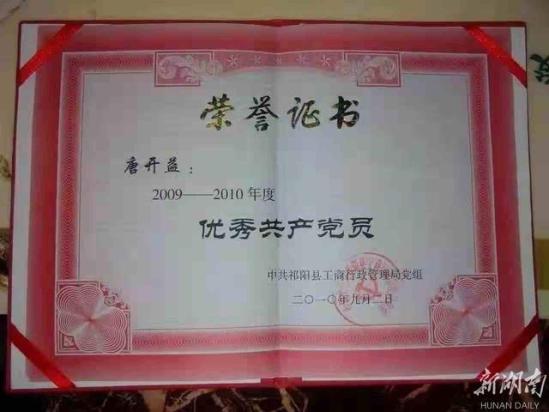 荣誉证书
唐开益：
2009——2010年度
优秀共产党员
中共祁阳县工商行政管理局党组
二〇一〇年九月二日
新湖南
HUNAN DAILY